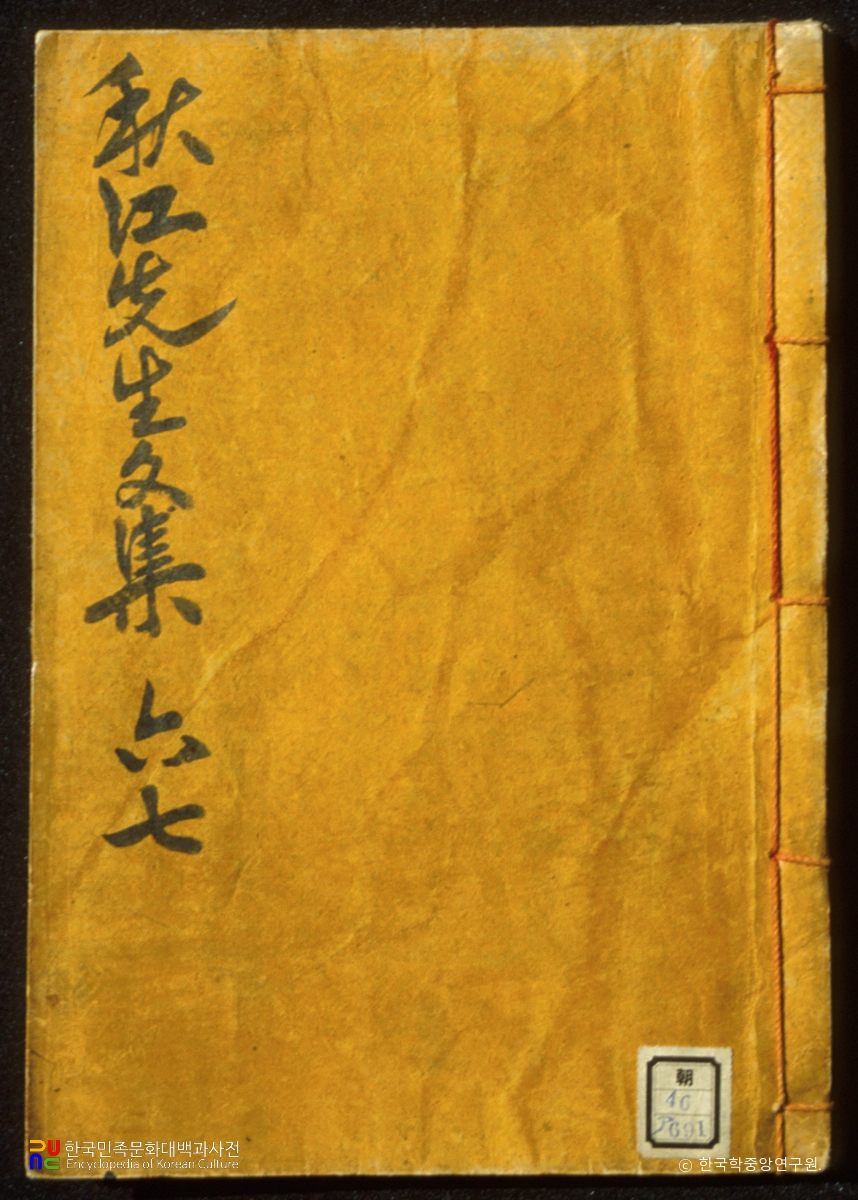 秋江先生文集 六七
朝
46
한국민족문화대백과사전
Encyclopedia of Korean Culture
© 한국학중앙연구원